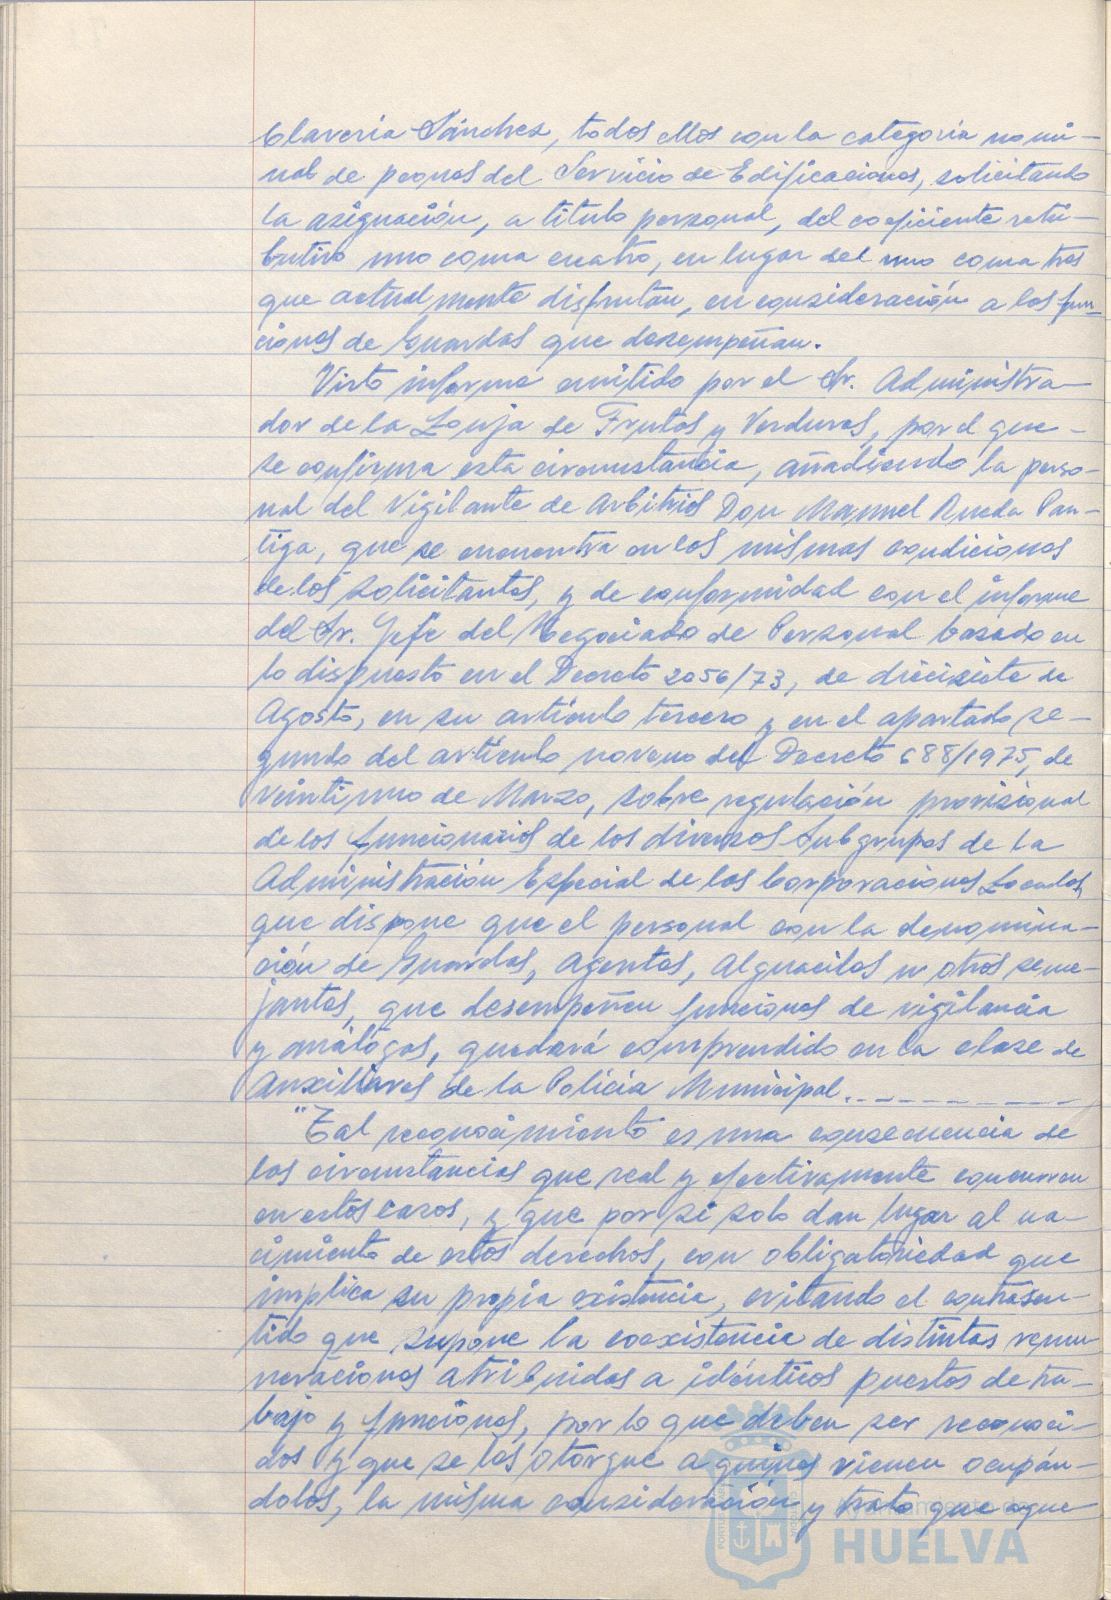 Clavería Sánchez, todos ellos con la categoría nomi-
nal de peones del Servicio de Edificaciones, solicitando
la asignación, a título personal, del coeficiente retri-
butivo uno coma cuatro, en lugar del uno coma tres
que actualmente disfrutan, en consideración a las fun-
ciones de Guardas que desempeñan.
Visto informe emitido por el Sr. Administra-
dor de la Lonja de Frutas y Verduras, por el que
se confirma esta circunstancia, añadiendo la perso-
nal del Vigilante de Arbitrios Don Manuel Rueda Pan-
tiga, que se encuentra en las mismas condiciones
de los solicitantes, y de conformidad con el informe
del Sr. Jefe del Negociado de Personal basado en
lo dispuesto en el Decreto 2056/73, de diecisiete de
Agosto, en su artículo tercero y en el apartado se-
gundo del artículo noveno del Decreto 688/1975, de
veintiuno de Marzo, sobre regulación provisional
de los funcionarios de los diversos Subgrupos de la
Administración Especial de las Corporaciones Locales,
que dispone que el personal con la denomina-
ción de Guardas, Agentes, Alguaciles u otros seme-
jantes, que desempeñen funciones de vigilancia
y análogas, quedará comprendido en la clase de
Auxiliares de la Policía Municipal.
"Tal reconocimiento es una consecuencia de
las circunstancias que real y efectivamente concurren
en estos casos, y que por sí solo dan lugar al na-
cimiento de estos derechos, con obligatoriedad que
implica su propia existencia, evitando el contrasen-
tido que supone la coexistencia de distintas remu
neraciones atribuidas a idénticos puestos de tra-
bajo y funciones, por lo que deben ser reconoci-
dos y que se les otorgue a quienes vienen ocupán-
dolos, la misma consideración y trato que aque
Ayuntamiento de
HUELVA